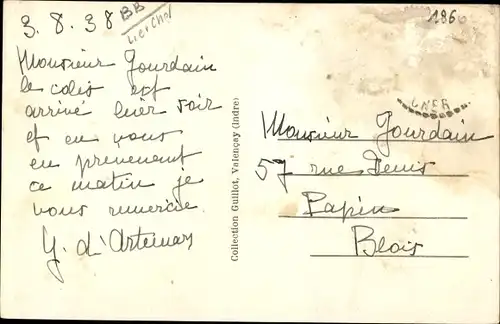 3.8.38
BB
1860
Monsieur Jourdain
le colis est
arrivé hier soir
et en vous
en prevenant
ce matin je
vous remercie.
Y. d'Artemar
Collection Guillot, Valençay (Indre)
Monsieur Jourdain
57 rue Denis
Papin
Blois